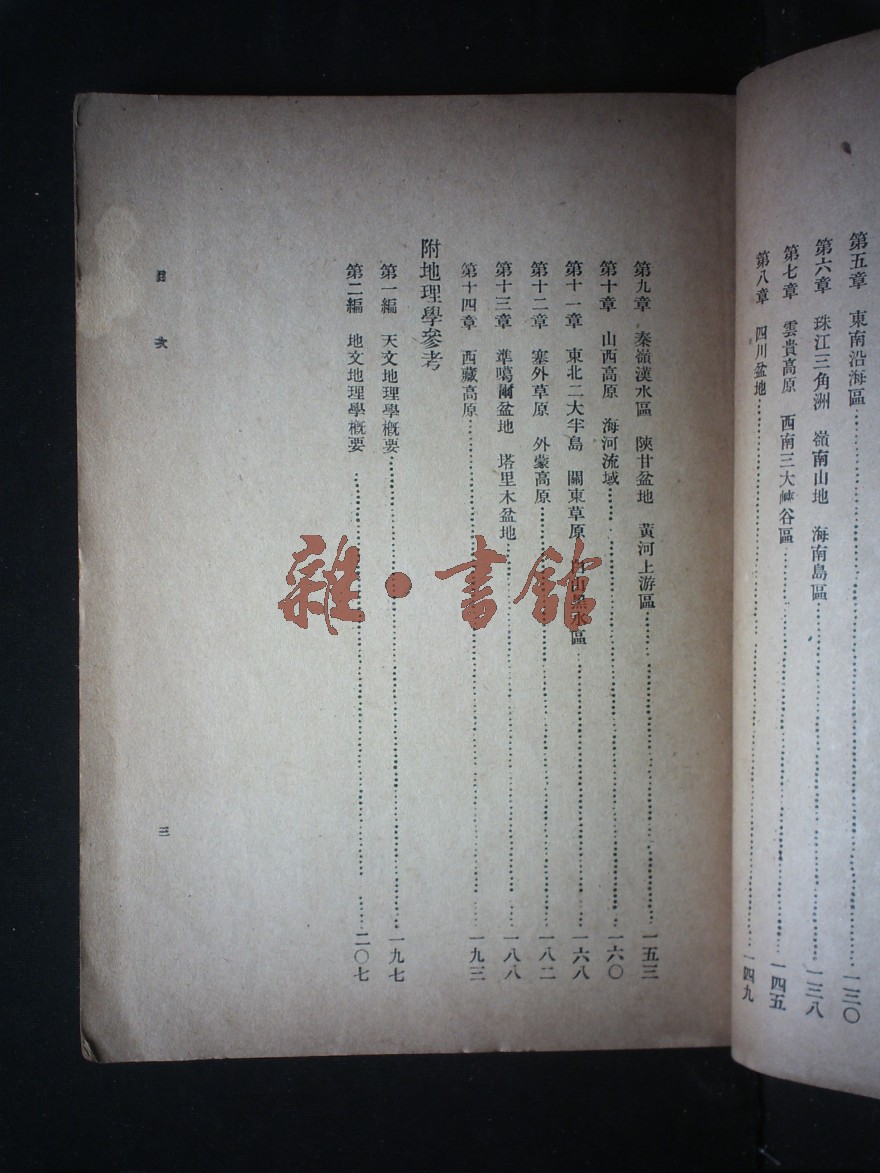 第五章　東南沿海區……一三〇
第六章　珠江三角洲　嶺南山地　海南島區……一三八
第七章　雲貴高原　西南三大峽谷區……一四五
第八章　四川盆地……一四九
第九章　秦嶺漢水區　陝甘盆地　黃河上游區……一五三
第十章　山西高原　海河流域……一六〇
第十一章　東北二大半島　關東草原　白山黑水區……一六八
第十二章　塞外草原　外蒙高原……一八二
第十三章　準噶爾盆地　塔里木盆地……一八八
第十四章　西藏高原……一九三
附地理學參考
第一編　天文地理學概要……一九七
第二編　地文地理學概要……二〇七
目次
三
雜·書館